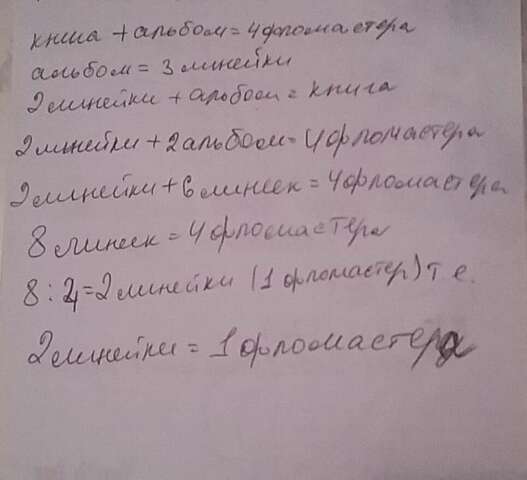 книга + альбом = 4 фломастера
альбом = 3 линейки
2 линейки + альбом = книга
2 линейки + 2 альбом = 4 фломастера
2 линейки + 6 линеек = 4 фломастера
8 линеек = 4 фломастера
8 : 4 = 2 линейки (1 фломастер) т е.
2 линейки = 1 фломастер